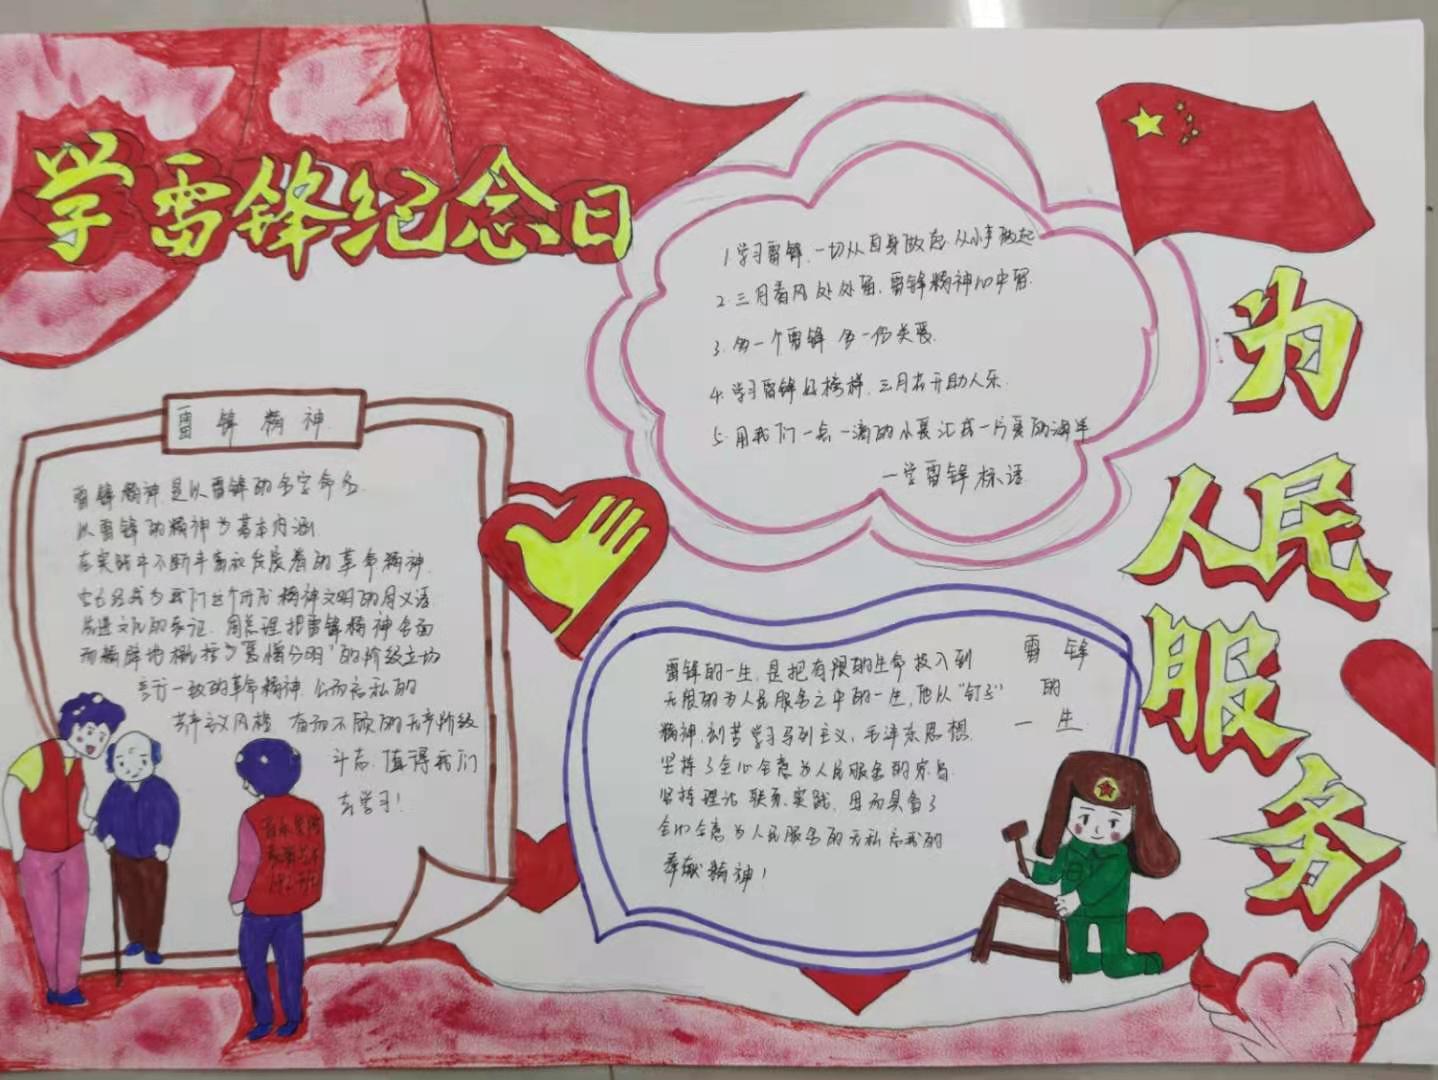 学雷锋纪念日
为人民服务
1.学习雷锋,一切从自身做起 从小事做起
2.三月春风处处面,雷锋精神心中留.
3.多一个雷锋 多一份关爱.
4.学习雷锋好榜样,三月花开助人乐.
5.用我们一点一滴的小爱汇成一片爱的海洋
一学雷锋标语
雷锋精神
雷锋精神是以雷锋的名字命名
以雷锋的精神为基本内涵
在实践中不断丰富和发展着的革命精神
周总理把雷锋精神全面
而精辟地概括为"爱憎分明"的阶级立场
言行一致的革命精神 公而忘私的
共产主义风格 奋而不顾的无产阶级
斗志,值得我们
去学习!
雷锋
的
一生
雷锋的一生,是把有限的生命投入到
无限的为人民服务之中的一生,他以"钉子"
精神,刻苦学习马列主义,毛泽东思想.
坚持了全心全意为人民服务的宗旨
坚持理论联系实践,因而具备了
全心全意为人民服务的无私忘我的
奉献精神!